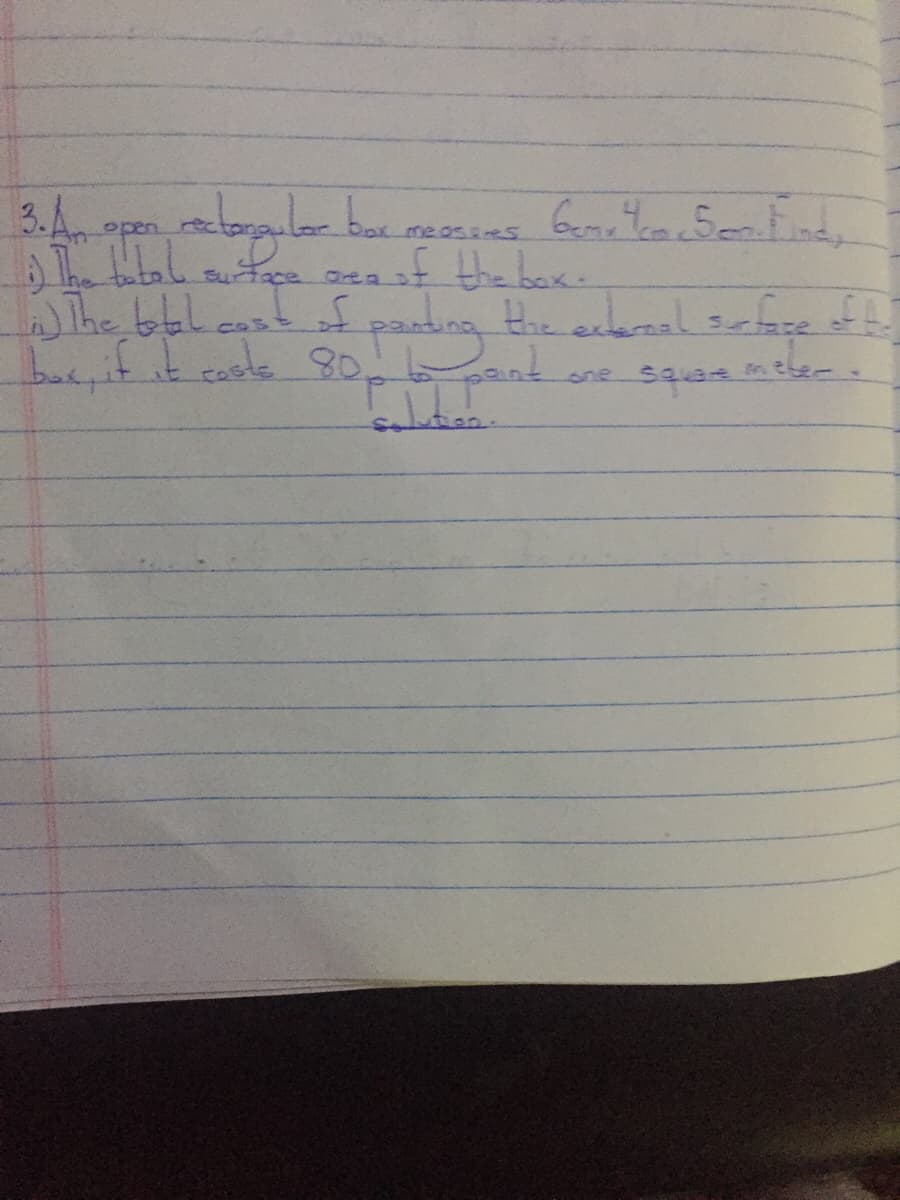 3. An open rectangular box measures 6cm x 4cm x 5cm. Find,
i) The total surface area of the box.
ii) The total cost of painting the external surface of the
box, if it costs 80p to paint one square meter.
solution.